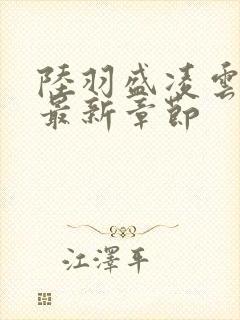 陸羽盛凌雲
最新章節
江澤平